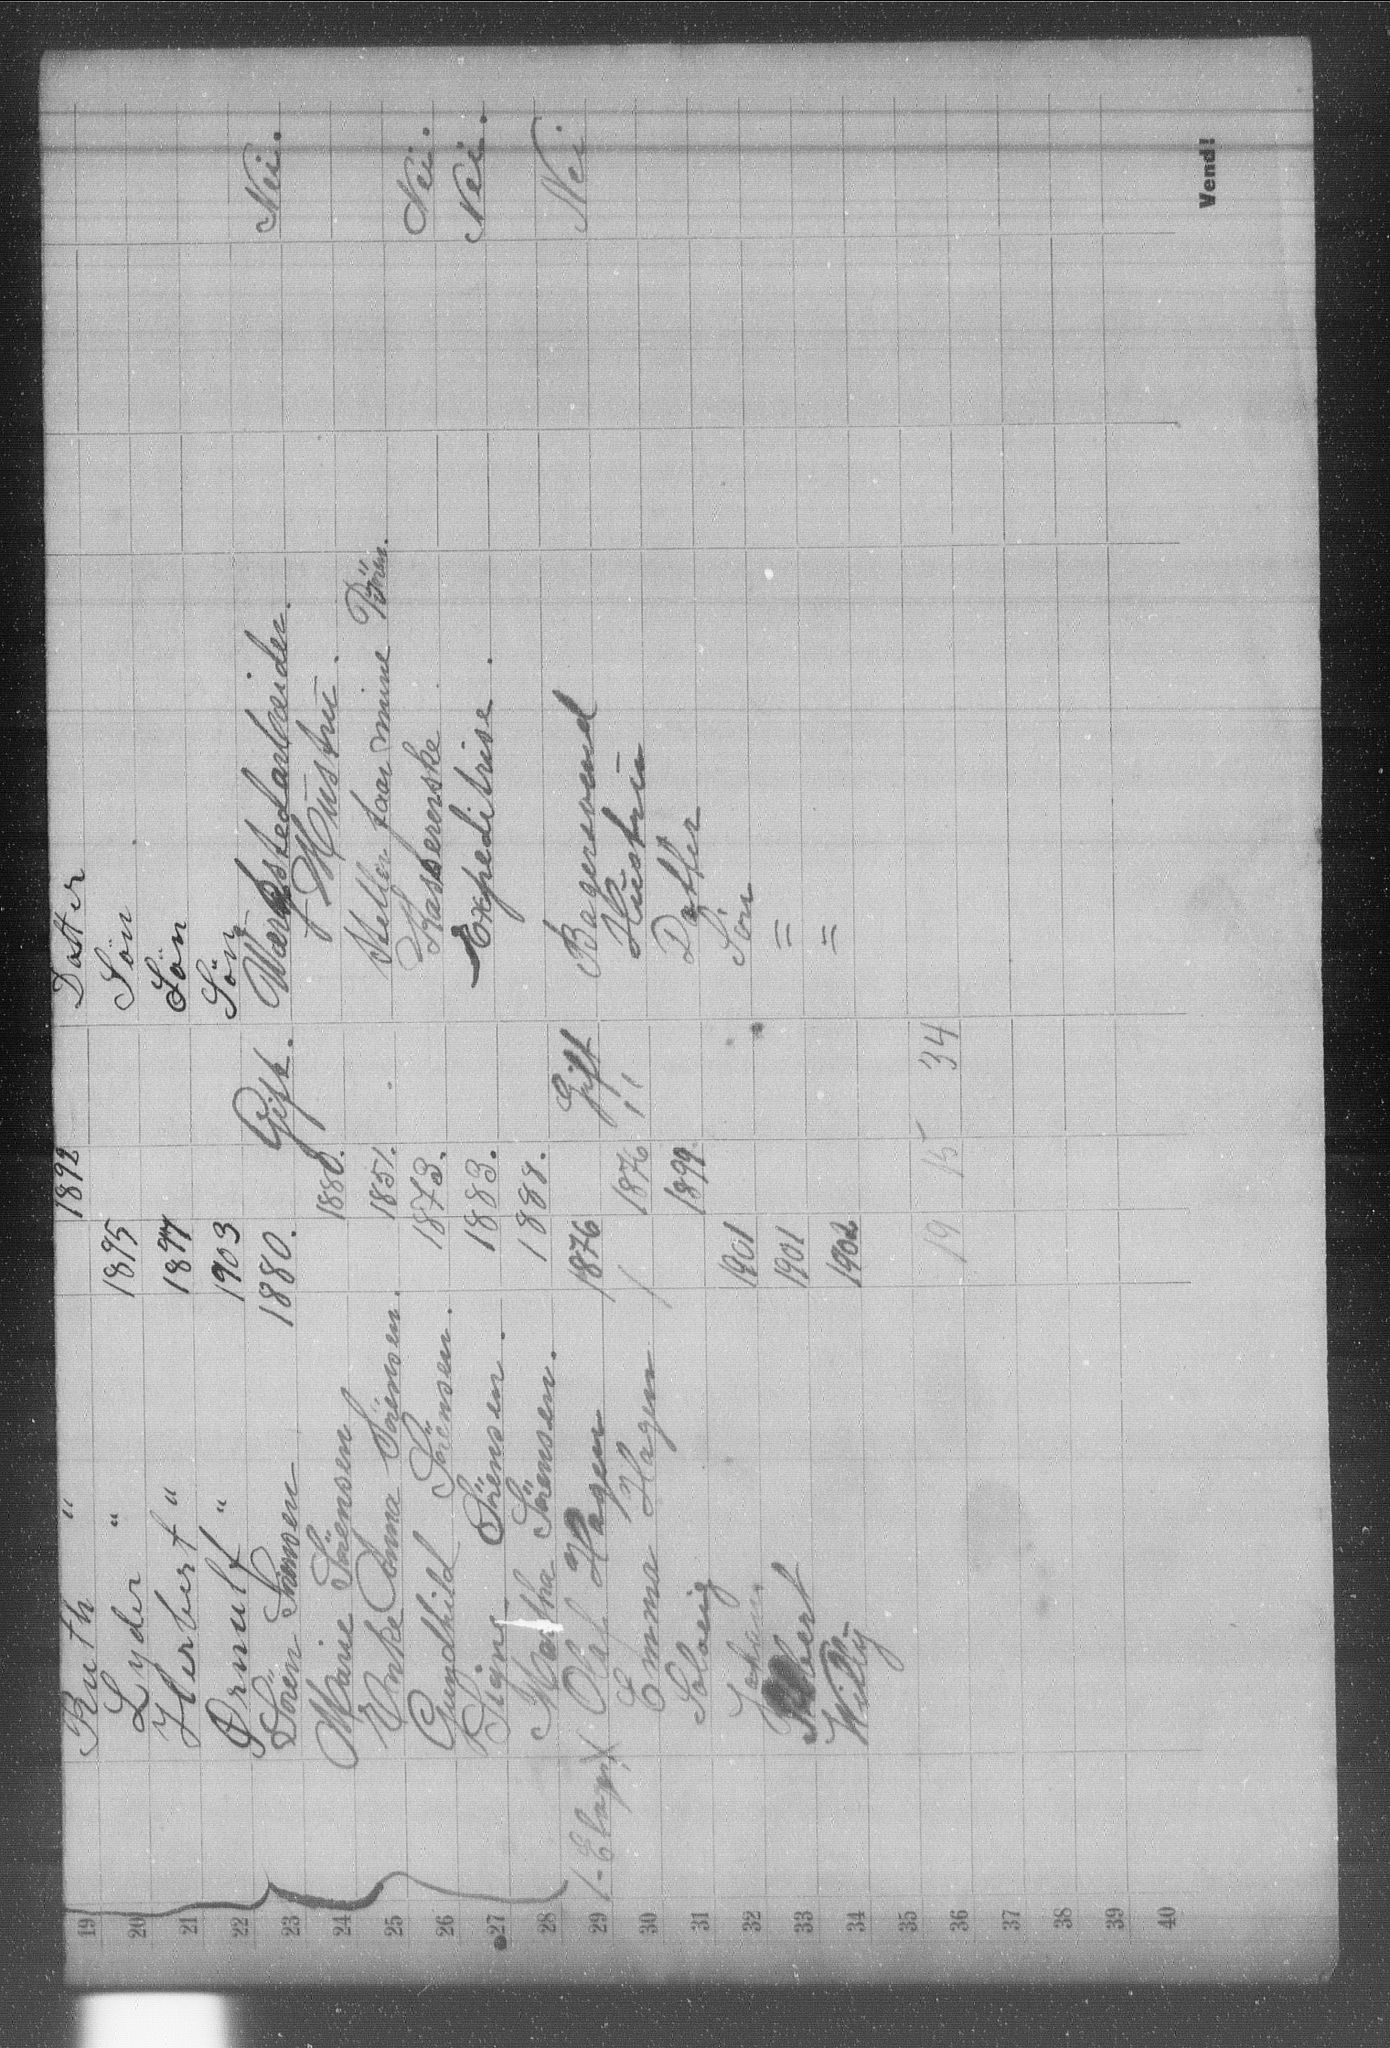 19 Ruth " 1892 Datter
20 Lyder " 1895 Sön
21 Herbert " 1897 Sön
22 Ørnulf " 1903 Sön
23 Sören Sörensen 1880. Gift. Værkstedarbeider. Nei.
24 Marie Sörensen 1880. Hustru.
25 Anna Sörensen. 1851. Steller for mine Börn.
26 Gundhild Sörensen. 1873. Kassererske Nei.
27 Signe Sörensen. 1883. Expeditrise. Nei.
28 Martha Sörensen. 1888.
29 1-Etage X Olaf Hagen 1876 Gift Bagersvend Nei.
30 Emma Hagen 1876 " Hustru
31 Solveig 1899 Datter
32 Johan 1901 Sön
33 1901 =
34 Willy 1902 =
35
36 19 15 34
37
38
39
40
Vend!